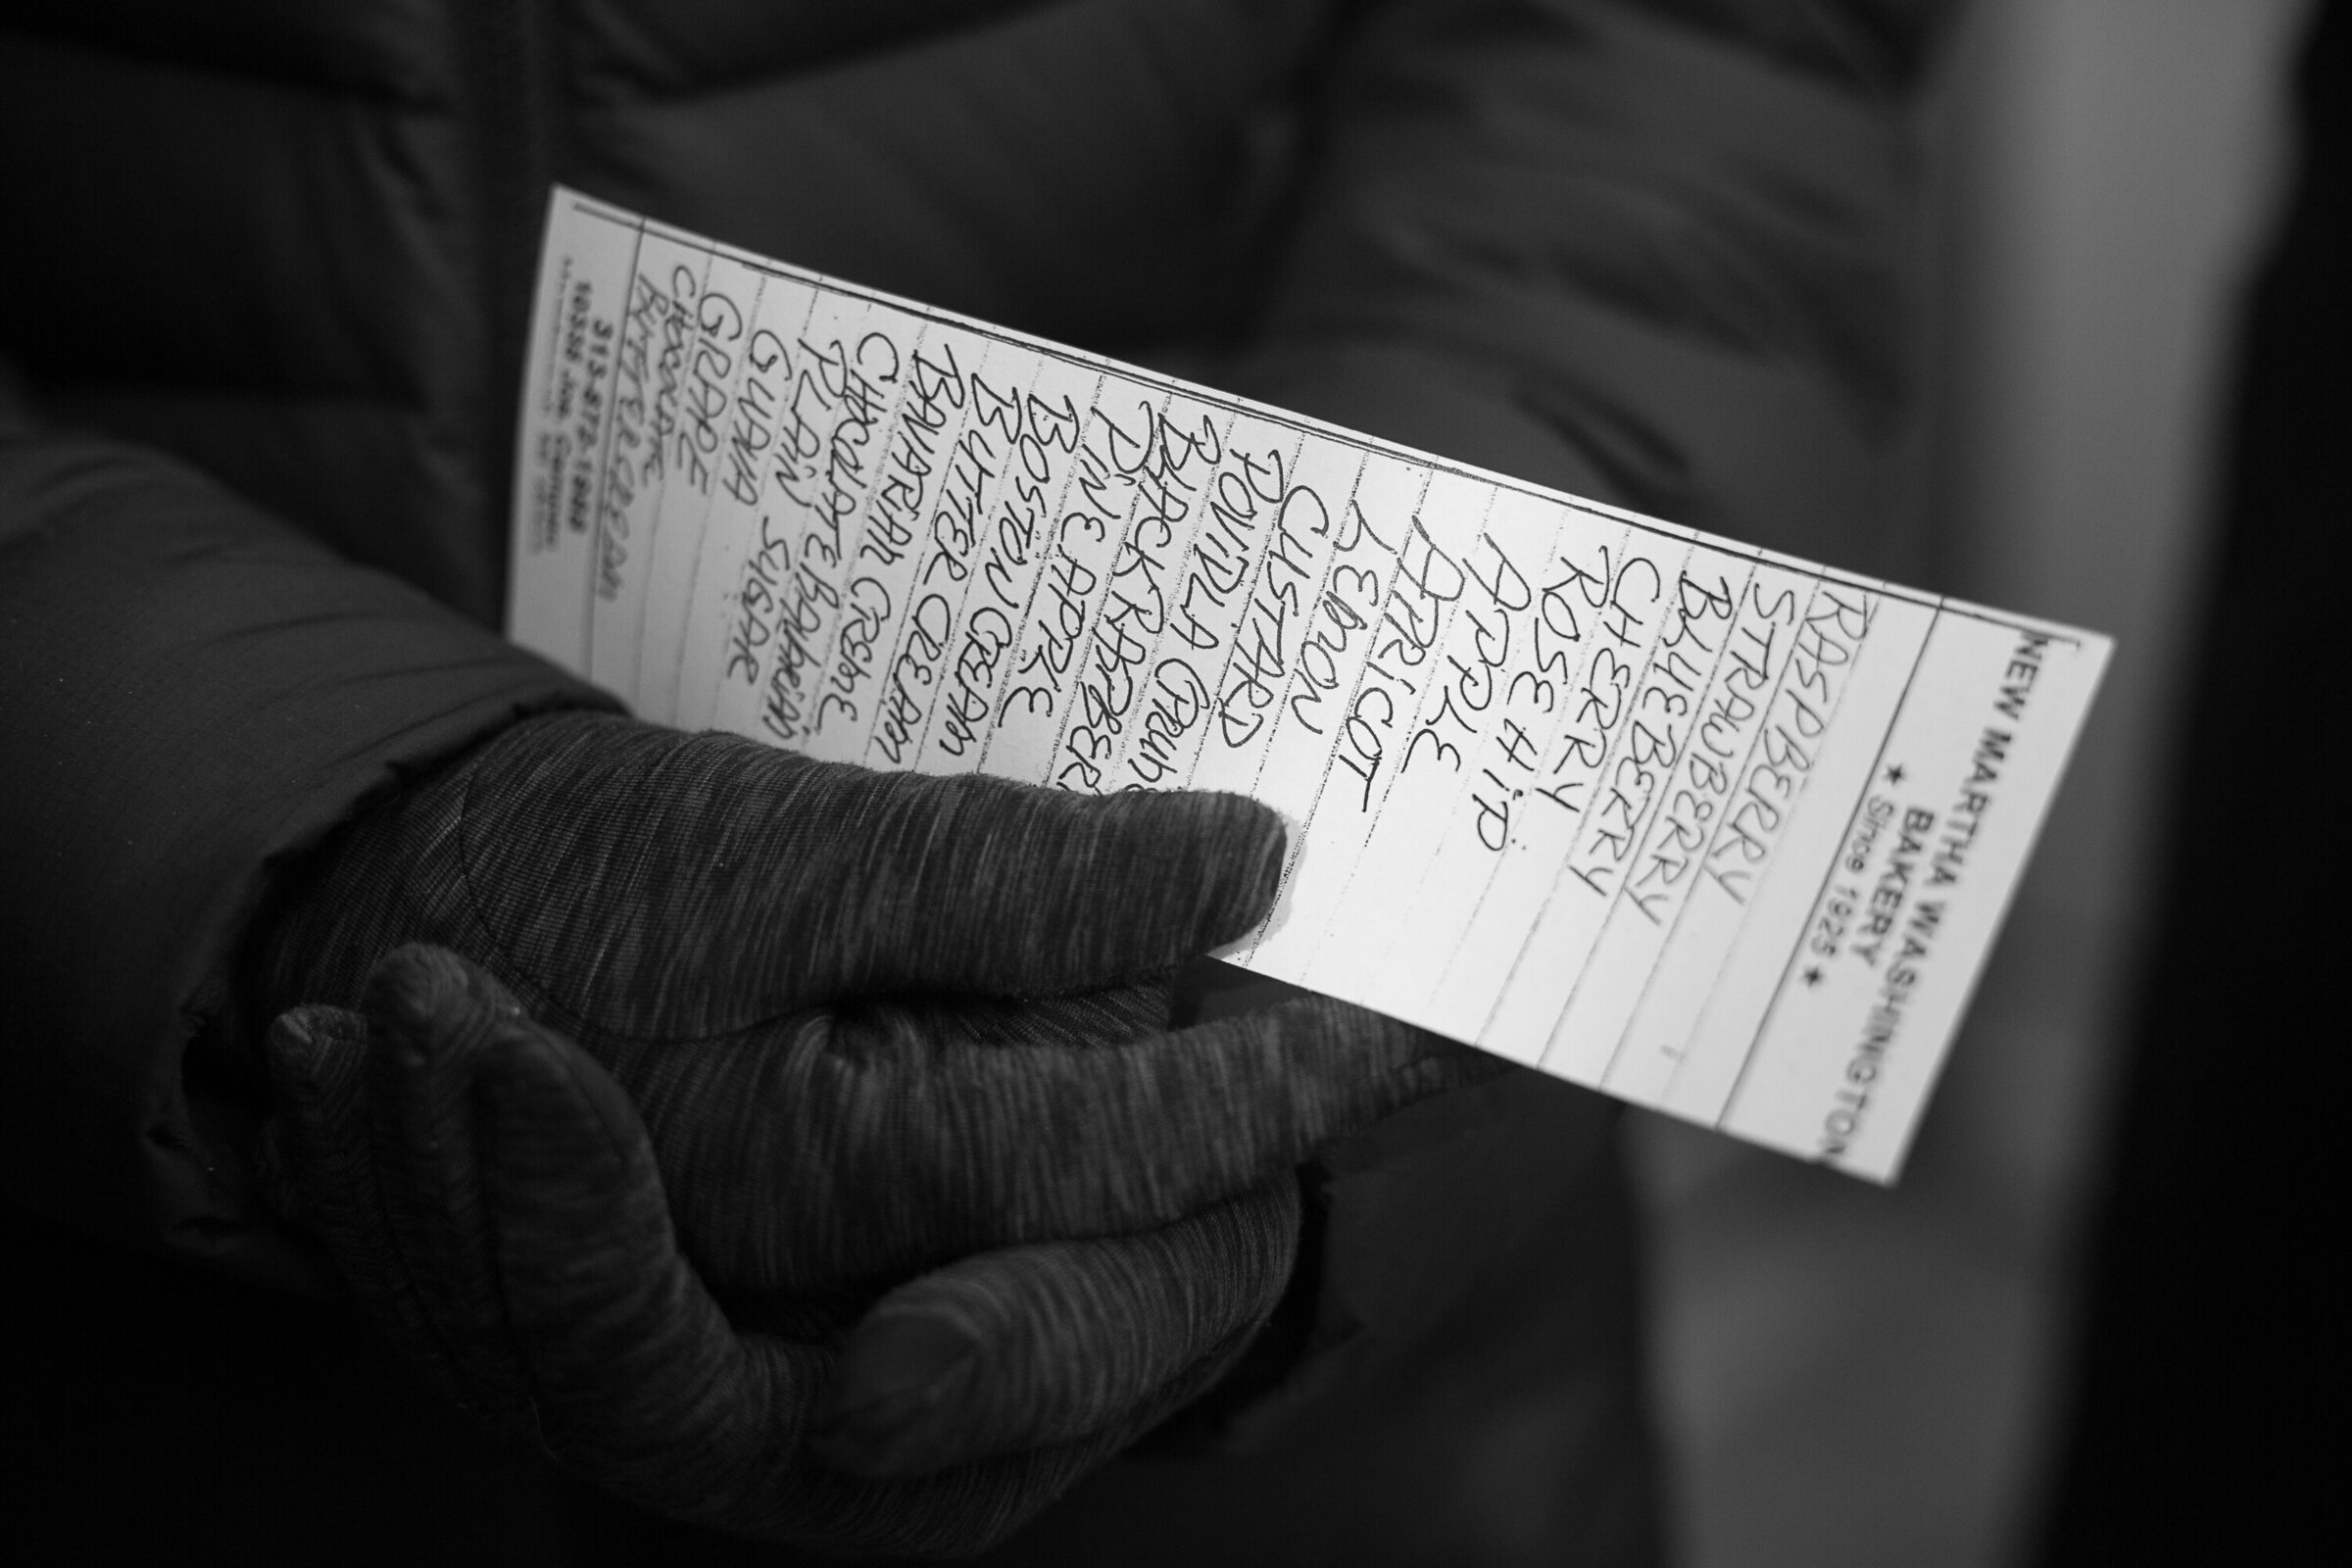 NEW MARTHA WASHINGTON
BAKERY
★ Since 1925 ★
RASPBERRY
STRAWBERRY
BLUEBERRY
CHERRY
ROSE HIP
APPLE
APRICOT
LEMON
CUSTARD
POVIDLA (PRUNE
BLACK RASPBER
PINEAPPLE
BOSTON CREAM
BUTTER CREAM
BAVARIAN CREME
CHOCOLATE BAVARIAN
PLAIN SUGAR
GUAVA
GRAPE
CHOCOLATE
BUTTERCREAM
313-872-1988
10335 Jos. Campau